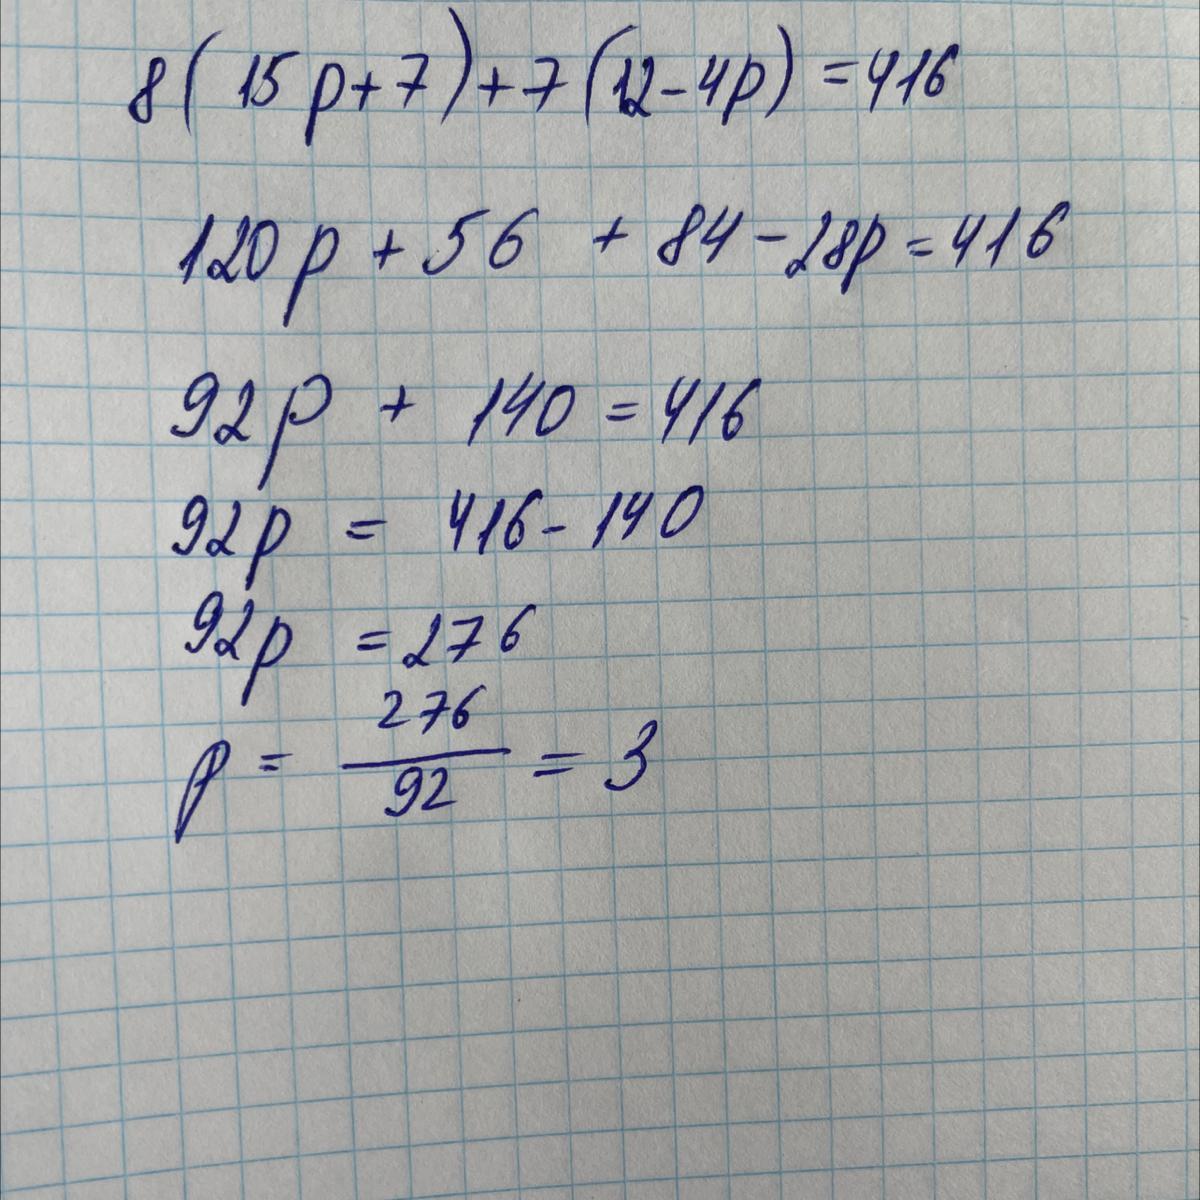 8(15p+7)+7(12-4p)=416
120p+56 + 84-28p=416
92p + 140=416
92p = 416-140
92p =276
p = 276/92 = 3